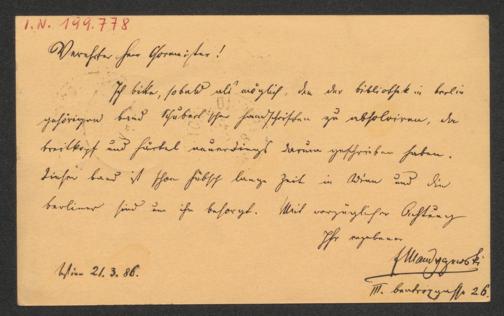 I.N. 199.778
Verehrter Herr Chormeister!
Ich bitte, sobald als möglich, den der Bibliothek in Berlin
gehörigen Band Schubert'scher Handschriften zu absolviren, da
Breitkopf und Härtel neuerdings darum geschrieben haben.
Dieser Band ist schon hübsch lange Zeit in Wien und die
Berliner sind um ihn besorgt. Mit vorzüglicher Achtung
Ihr ergebener
EMandyczewski
Wien 21.3.86.
III. Beatrixgasse 26.